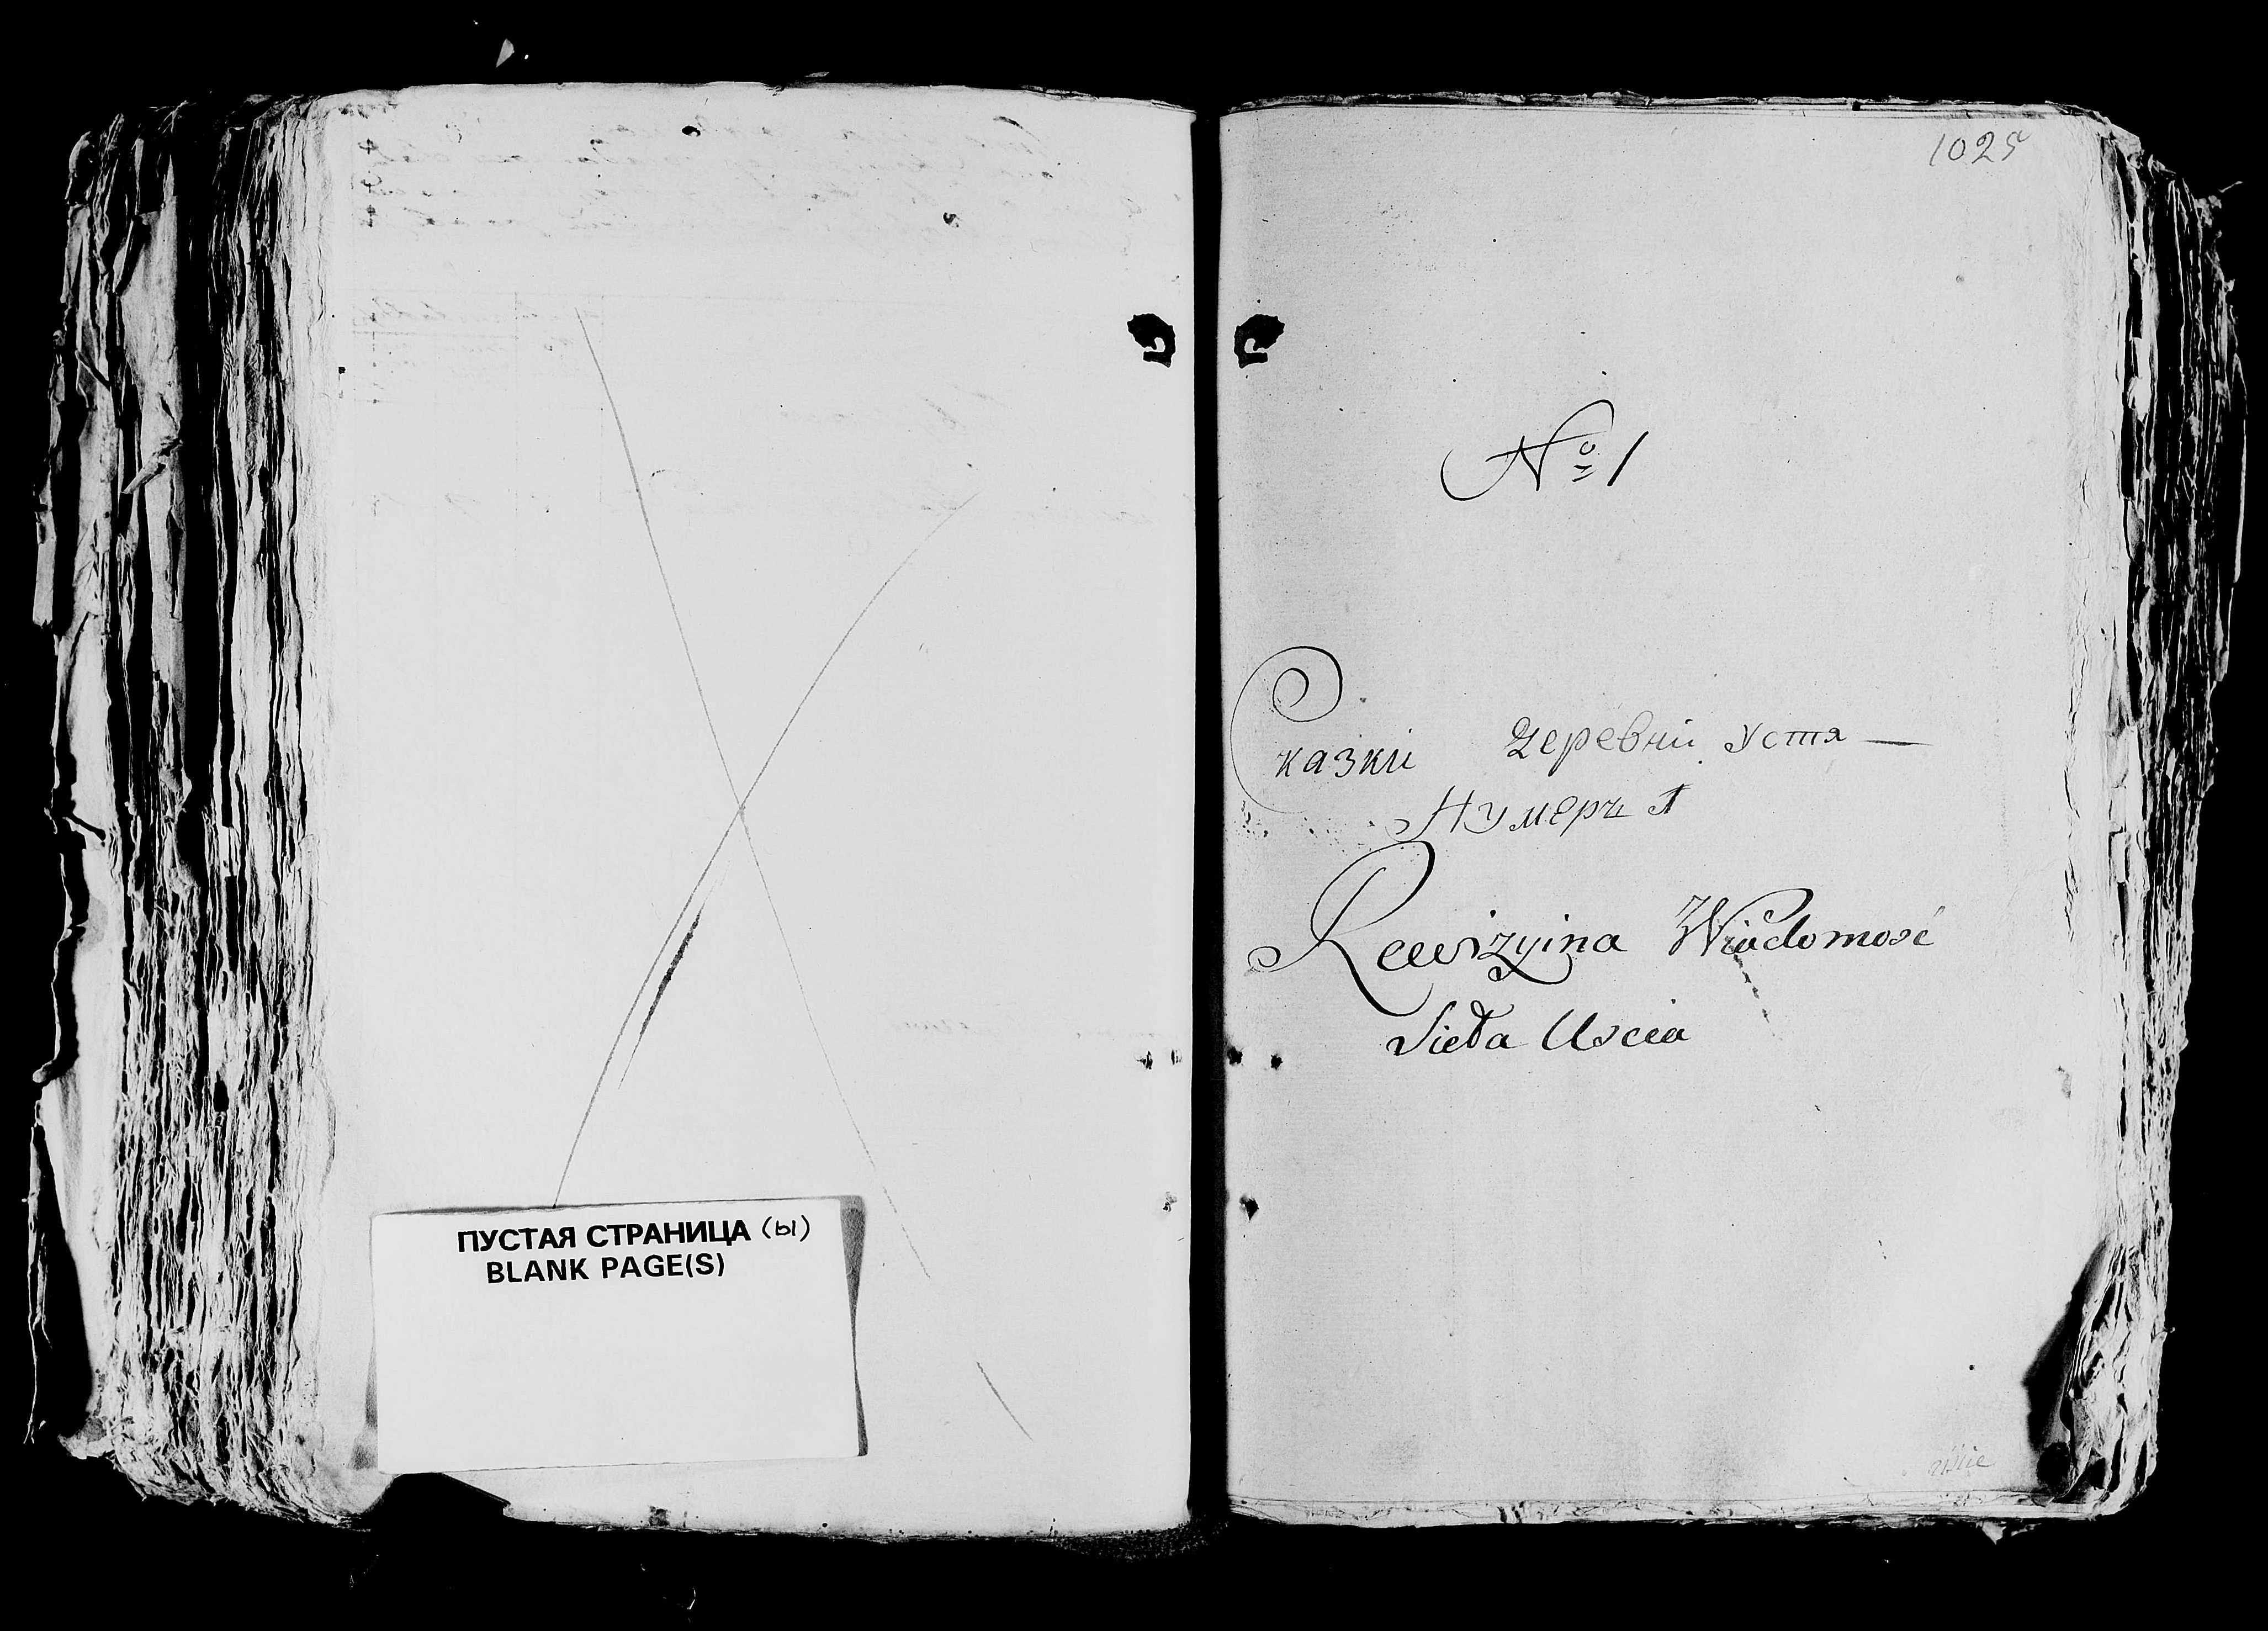 ПУСТАЯ СТРАНИЦА (ы)
BLANK PAGE(S)
1025
№ 1
Сказки деревни устя —
Нумеръ 1
Rewizyina Wiadomość
Sioła Uscia